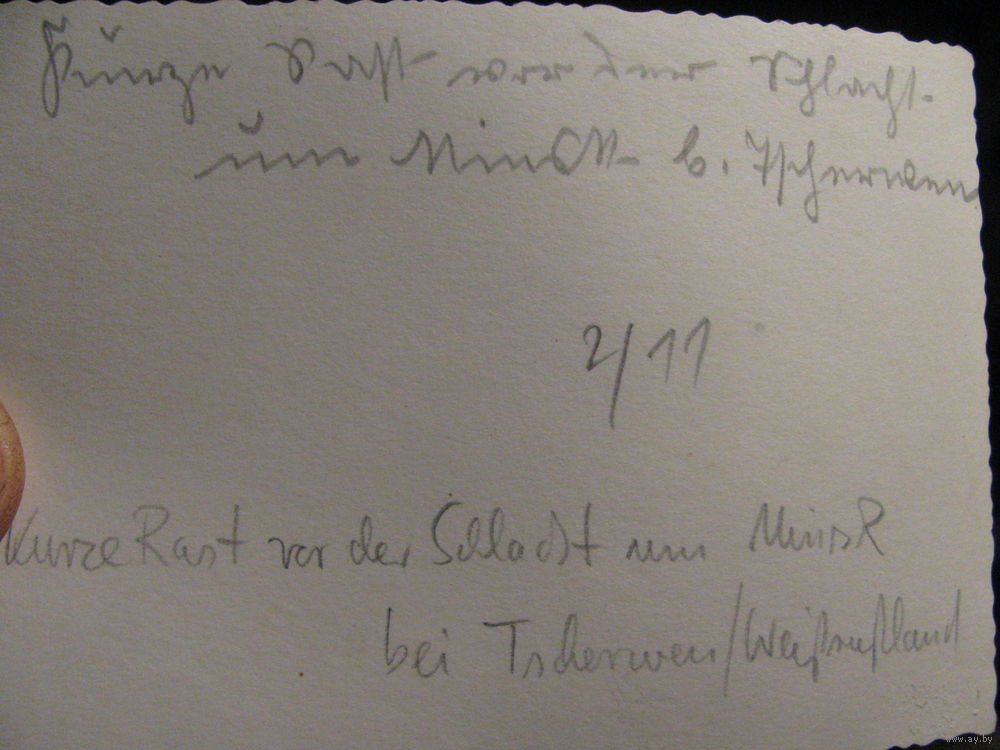 Kurze Rast vor der Schlacht
um Minsk b. Tscherwen
2/11
Kurze Rast vor der Schlacht um Minsk
bei Tscherwen/Weißrußland
www.ay.by